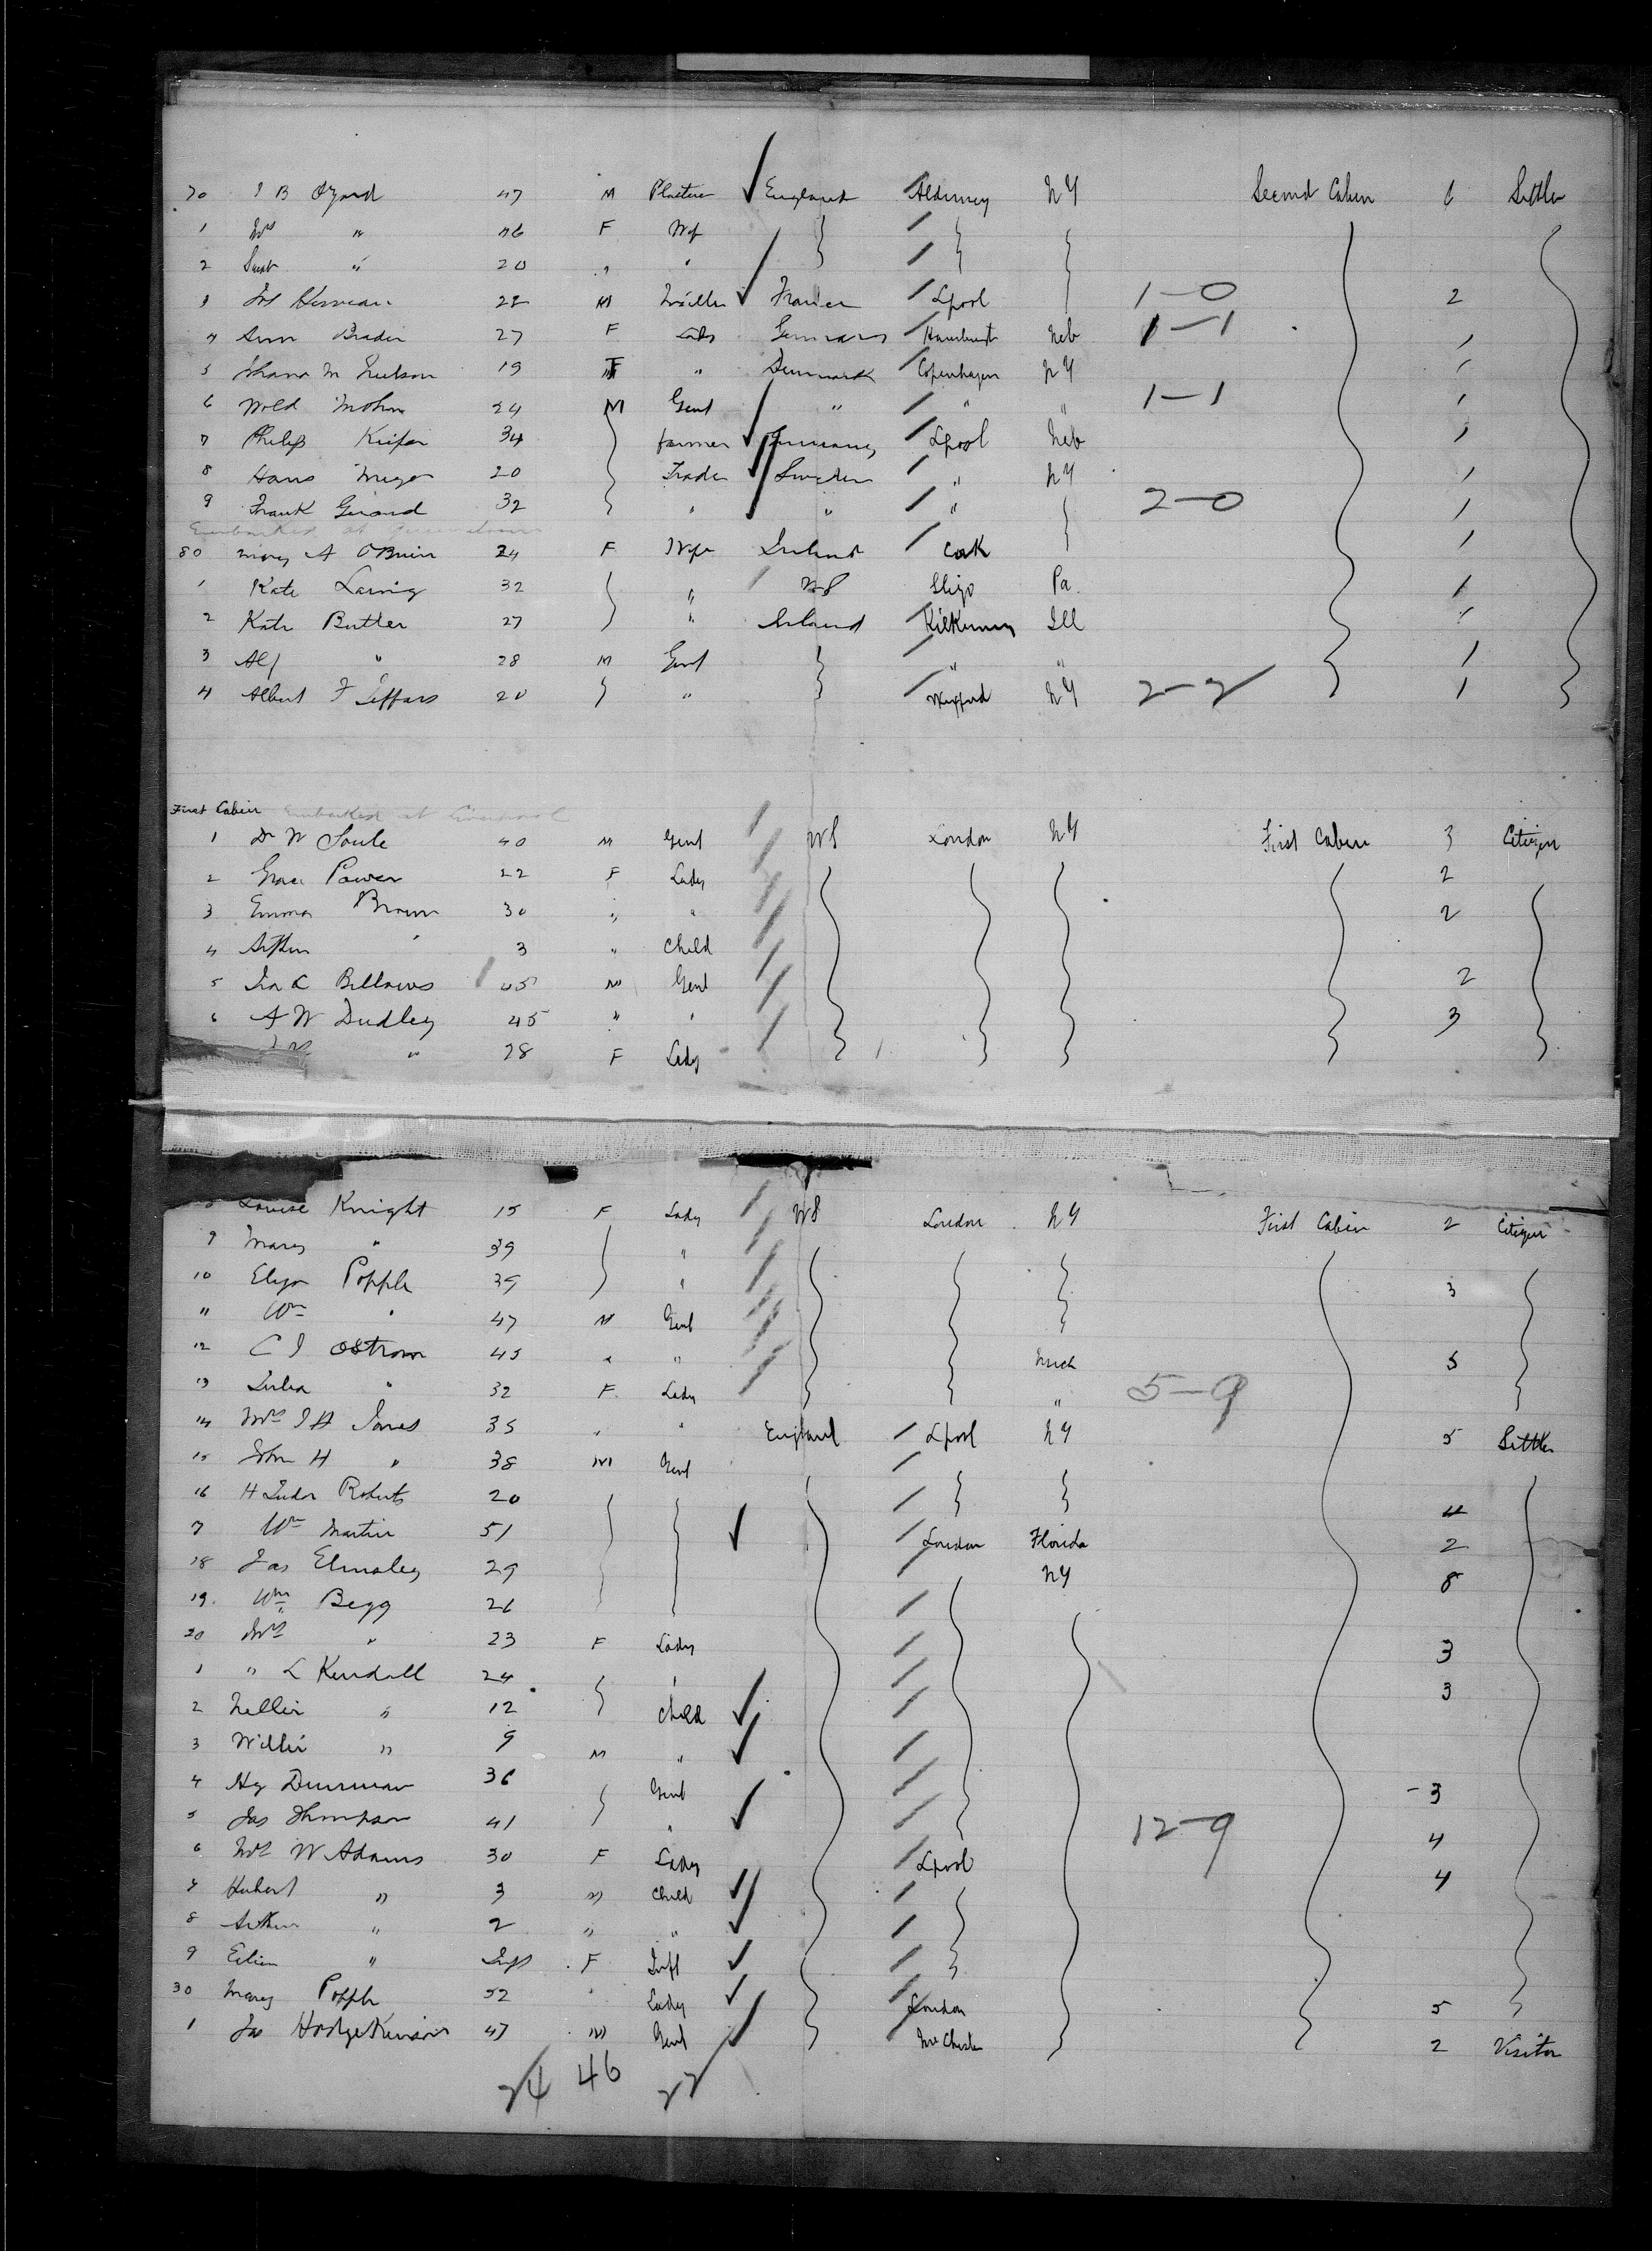 70 J B Ozard 47 M England Alderney NY Second Cabin 6 Settler
1 Mrs " 46 F Wf
2 " 20 "
3 22 M France Lpool 1-0 2
4 27 F Lady Germany Neb 1-1 1
5 19 F " Denmark Copenhagen NY 1
6 24 M Gent " " " 1-1 1
7 Philip 34 farmer Germany Lpool Neb 1
8 Hans 20 Trader Sweden " NY 1
9 Frank Girard 32 " " " 2-0 1
Embarked at Queenstown
80 Mary A O'Brien 24 F Wife Ireland Cork 1
1 Kate 32 " US Sligo Pa. 1
2 Kate Butler 27 " Ireland Kilkenny Ill 1
3 Alf " 28 M Gent " " 1
4 Albert F 20 " Wexford NY 2-2 1
First Cabin Embarked at Liverpool
1 Dr W Soule 40 M Gent US London NY First Cabin 3 Citizen
2 Grace Power 22 F Lady 2
3 Emma Brown 30 " " 2
4 Arthur " 3 " Child
5 Ira C Bellows 45 M Gent 2
6 A W Dudley 45 " " 3
Mrs " 28 F Lady
8 Louise Knight 15 F Lady US London NY First Cabin 2 Citizen
9 Mary " 39 "
10 Eliza Popple 39 " 3
11 Wm " 47 M Gent
12 C J Ostrom 45 " " Mich 5
13 Julia " 32 F Lady " 5-9
14 Mrs J H Jones 35 " " England Lpool NY 5 Settler
15 John H " 38 M Gent
16 H Tudor Roberts 20 4
7 Wm Martin 51 London Florida 2
18 Jas Elmsley 29 NY 8
19. Wm Begg 26
20 Mrs " 23 F Lady 3
1 " L Kendall 24 " 3
2 Nellie " 12 Child
3 Willie " 9 M "
4 Hy 36 Gent 3
5 Jas Thompson 41 " 12-9 4
6 Mrs W Adams 30 F Lady Lpool 4
7 Hubert " 3 M Child
8 Arthur " 2 " "
9 " Inft F Inft
30 Mary Popple 52 " Lady London 5
1 Jas Hodgekinson 47 M Gent 2 Visitor
24 46 22